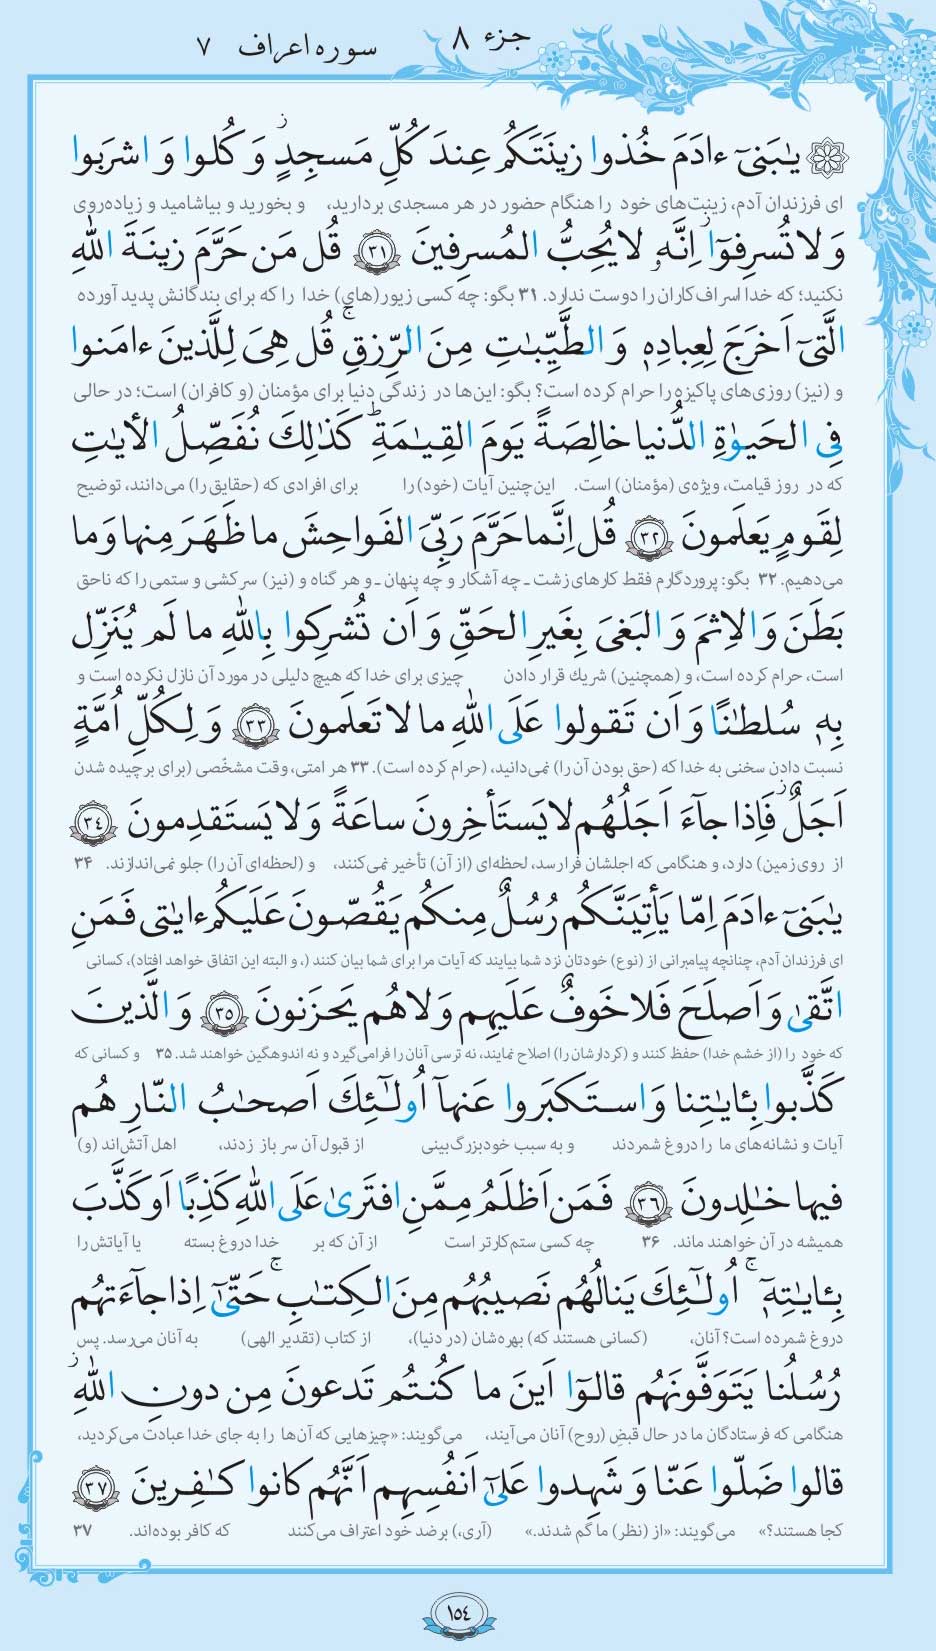 جزء ۸
سوره اعراف ۷
یٰبَنیٓ ءادَمَ خُذوا زینَتَکُم عِندَ کُلِّ مَسجِدٍ وَ کُلوا وَ اشرَبوا
ای فرزندان آدم، زینت‌های خود را هنگام حضور در هر مسجدی بردارید، و بخورید و بیاشامید و زیاده‌روی
وَ لا تُسرِفوٓا اِنَّهٗ لا یُحِبُّ المُسرِفینَ ﴿۳۱﴾ قُل مَن حَرَّمَ زینَةَ اللهِ
نکنید؛ که خدا اسراف‌کاران را دوست ندارد. ۳۱ بگو: چه کسی زیور(های) خدا را که برای بندگانش پدید آورده
الَّتیٓ اَخرَجَ لِعِبادِهٖ وَ الطَّیِّبٰتِ مِنَ الرِّزقِ ۚ قُل هِیَ لِلَّذینَ ءامَنوا
و (نیز) روزی‌های پاکیزه را حرام کرده است؟ بگو: این‌ها در زندگی دنیا برای مؤمنان (و کافران) است؛ در حالی
فِی الحَیوٰةِ الدُّنیا خالِصَةً یَومَ القِیٰمَةِ ۗ کَذٰلِكَ نُفَصِّلُ الأیٰتِ
که در روز قیامت، ویژه‌ی (مؤمنان) است. این‌چنین آیات (خود) را برای افرادی که (حقایق را) می‌دانند، توضیح
لِقَومٍ یَعلَمونَ ﴿۳۲﴾ قُل اِنَّما حَرَّمَ رَبِّیَ الفَواحِشَ ما ظَهَرَ مِنها وَ ما
می‌دهیم. ۳۲ بگو: پروردگارم فقط کارهای زشت ـ چه آشکار و چه پنهان ـ و هر گناه و (نیز) سرکشی و ستمی را که ناحق
بَطَنَ وَ الاِثمَ وَ البَغیَ بِغَیرِ الحَقِّ وَ اَن تُشرِکوا بِاللهِ ما لَم یُنَزِّل
است، حرام کرده است، و (همچنین) شریك قرار دادن چیزی برای خدا که هیچ دلیلی در مورد آن نازل نکرده است و
بِهٖ سُلطٰنًا وَ اَن تَقولوا عَلَی اللهِ ما لا تَعلَمونَ ﴿۳۳﴾ وَ لِکُلِّ اُمَّةٍ
نسبت دادن سخنی به خدا که (حق بودن آن را) نمی‌دانید، (حرام کرده است). ۳۳ هر امتی، وقت مشخّصی (برای برچیده شدن
اَجَلٌ ۖ فَاِذا جآءَ اَجَلُهُم لا یَستَأخِرونَ ساعَةً وَ لا یَستَقدِمونَ ﴿۳۴﴾
از روی زمین) دارد، و هنگامی که اجلشان فرا رسد، لحظه‌ای (از آن) تأخیر نمی‌کنند، و (لحظه‌ای آن را) جلو نمی‌اندازند. ۳۴
یٰبَنیٓ ءادَمَ اِمّا یَأتِیَنَّکُم رُسُلٌ مِنکُم یَقُصّونَ عَلَیکُم ءایٰتی فَمَنِ
ای فرزندان آدم، چنانچه پیامبرانی از (نوع) خودتان نزد شما بیایند که آیات مرا برای شما بیان کنند (، و البته این اتفاق خواهد افتاد)، کسانی
اتَّقیٰ وَ اَصلَحَ فَلا خَوفٌ عَلَیهِم وَ لا هُم یَحزَنونَ ﴿۳۵﴾ وَ الَّذینَ
که خود را (از خشم خدا) حفظ کنند و (کردارشان را) اصلاح نمایند، نه ترسی آنان را فرا می‌گیرد و نه اندوهگین خواهند شد. ۳۵ و کسانی که
کَذَّبوا بِـٔایٰتِنا وَ استَکبَروا عَنهآ اُولٰٓئِكَ اَصحٰبُ النّارِ هُم
آیات و نشانه‌های ما را دروغ شمردند و به سبب خودبزرگ‌بینی از قبول آن سر باز زدند، اهل آتش‌اند (و)
فیها خٰلِدونَ ﴿۳۶﴾ فَمَن اَظلَمُ مِمَّنِ افتَریٰ عَلَی اللهِ کَذِبًا اَو کَذَّبَ
همیشه در آن خواهند ماند. ۳۶ چه کسی ستم‌کارتر است از آن که بر خدا دروغ بسته یا آیاتش را
بِـٔایٰتِهٖٓ ۚ اُولٰٓئِكَ یَنالُهُم نَصیبُهُم مِنَ الکِتٰبِ ۚ حَتّیٰٓ اِذا جآءَتهُم
دروغ شمرده است؟ آنان، (کسانی هستند که) بهره‌شان (در دنیا)، از کتاب (تقدیر الهی) به آنان می‌رسد. پس
رُسُلُنا یَتَوَفَّونَهُم قالوٓا اَینَ ما کُنتُم تَدعونَ مِن دونِ اللهِ ۖ
هنگامی که فرستادگان ما در حال قبضِ (روح) آنان می‌آیند، می‌گویند: «چیزهایی که آن‌ها را به جای خدا عبادت می‌کردید،
قالوا ضَلّوا عَنّا وَ شَهِدوا عَلیٰٓ اَنفُسِهِم اَنَّهُم کانوا کٰفِرینَ ﴿۳۷﴾
کجا هستند؟» می‌گویند: «از (نظر) ما گم شدند.» (آری،) بر ضد خود اعتراف می‌کنند که کافر بوده‌اند. ۳۷
۱۵٤